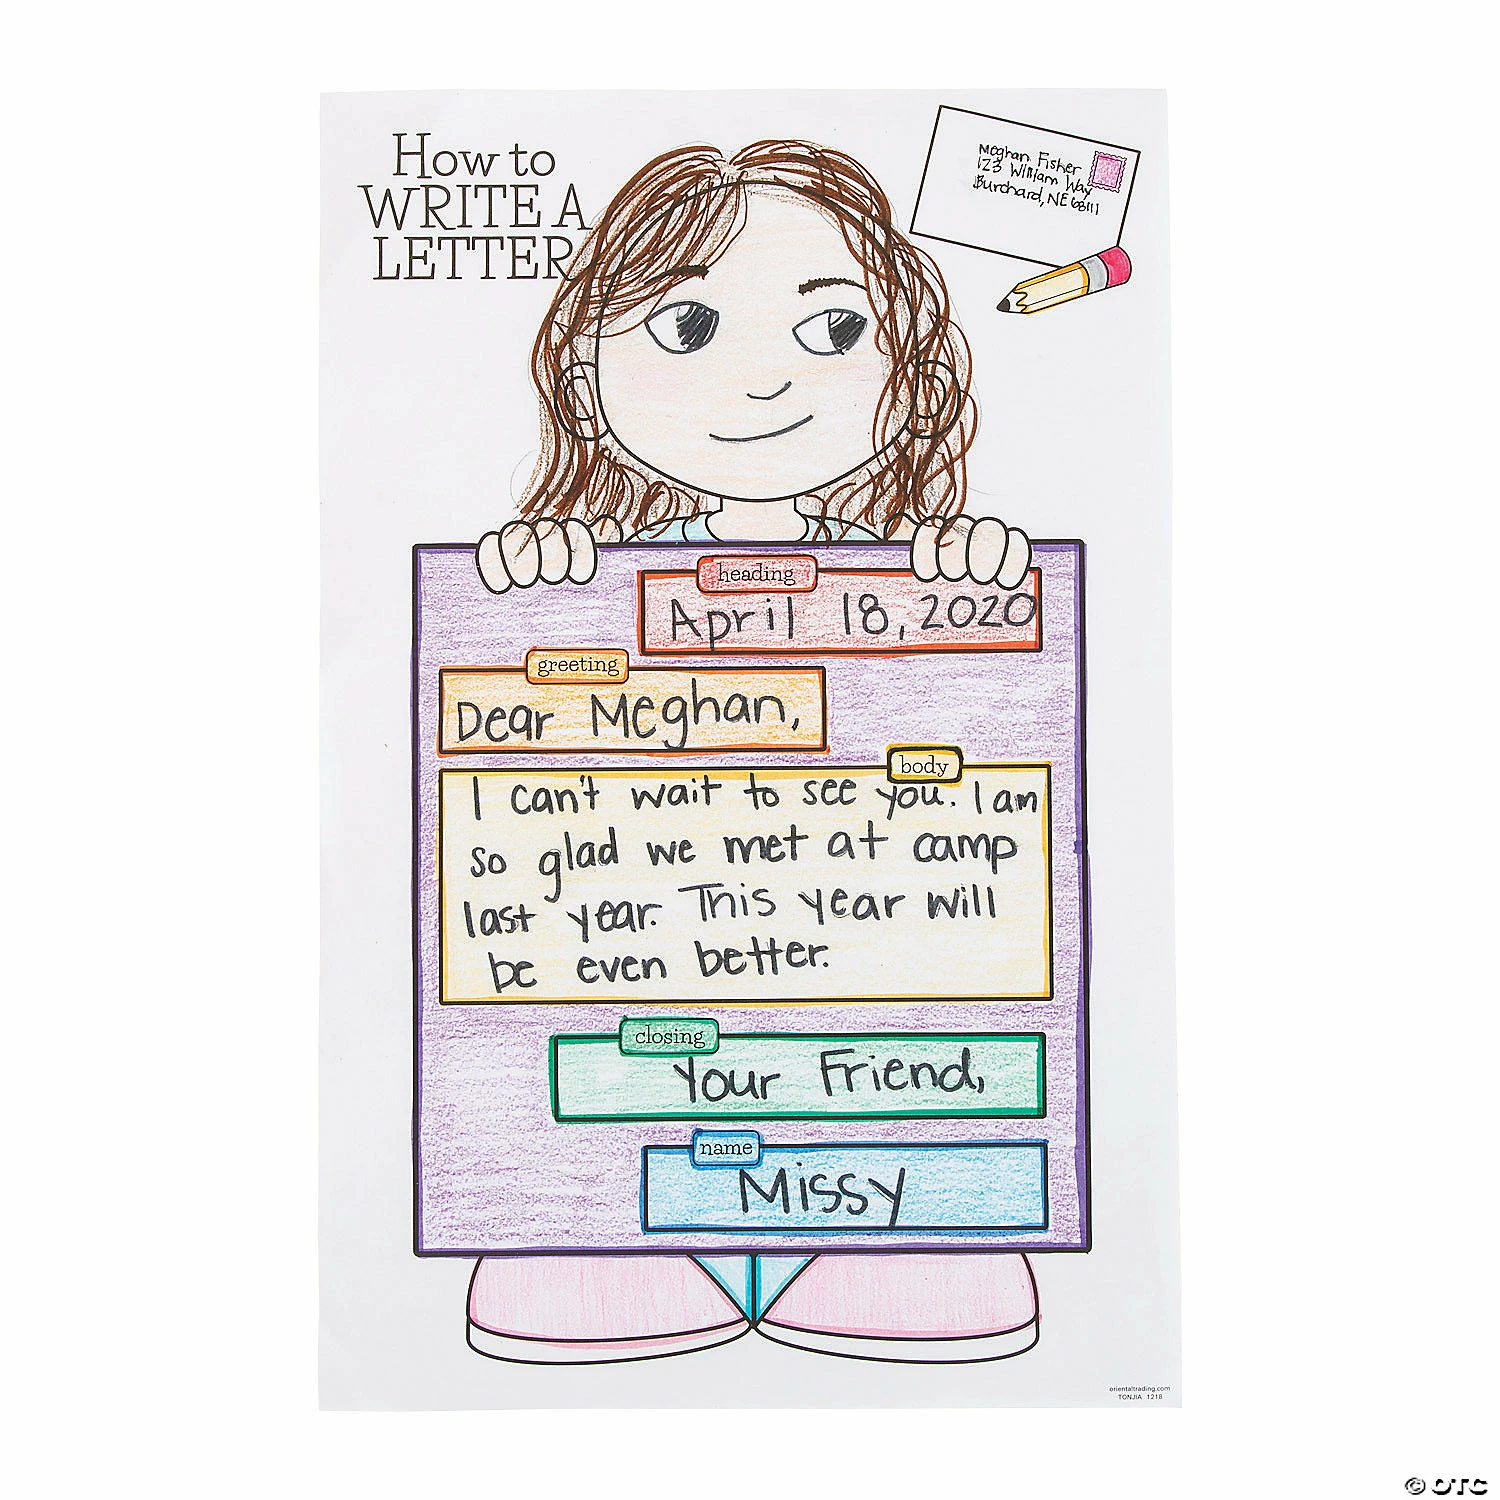 How to
WRITE A
LETTER
Meghan Fisher
123 William Way
Burchard, NE 68111
heading
April 18, 2020
greeting
Dear Meghan,
body
I can't wait to see you. I am
so glad we met at camp
last year. This year will
be even better.
closing
Your Friend,
name
Missy
orientaltrading.com
TONJIA 1218
© OTC